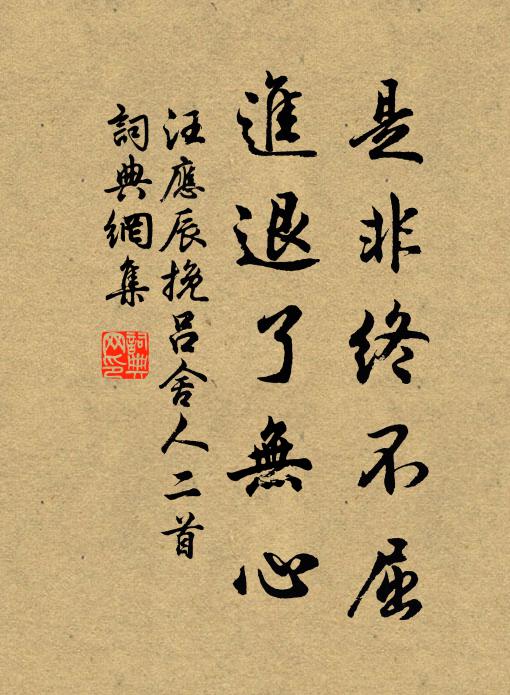 是非終不屈
進退了無心
汪應辰挽呂舍人二首
詞典網集
詞典網印